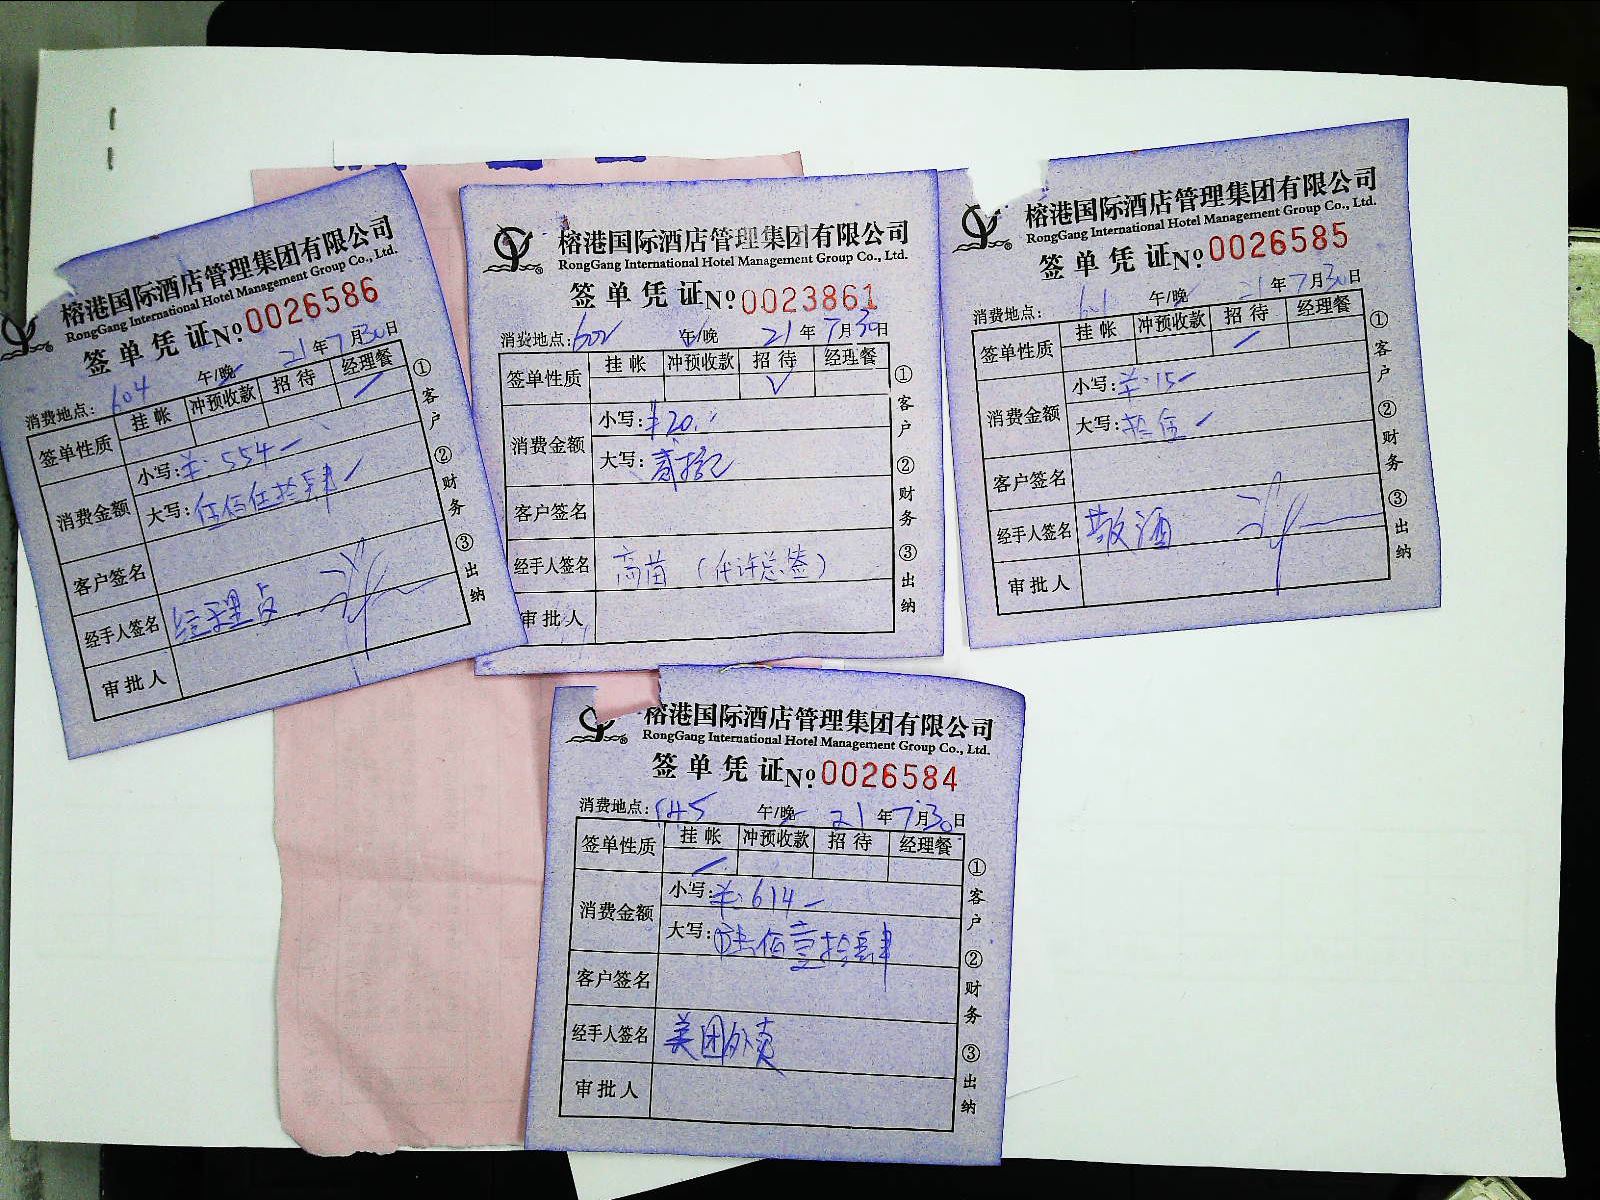 榕港国际酒店管理集团有限公司
RongGang International Hotel Management Group Co., Ltd.
签单凭证 No 0026586
消费地点: 604 午/晚 21年7月30日
签单性质 挂帐 冲预收款 招待 经理餐
消费金额 小写: ¥:554
大写: 伍佰伍拾肆
客户签名
经手人签名 经理点
审批人
①客户 ②财务 ③出纳
榕港国际酒店管理集团有限公司
RongGang International Hotel Management Group Co., Ltd.
签单凭证 No 0023861
消费地点: 602 午/晚 21年7月30日
签单性质 挂帐 冲预收款 招待 经理餐
√
消费金额 小写: ¥20
大写: 贰拾元
客户签名
经手人签名 高苗(代许总签)
审批人
①客户 ②财务 ③出纳
榕港国际酒店管理集团有限公司
RongGang International Hotel Management Group Co., Ltd.
签单凭证 No 0026585
消费地点: 601 午/晚 21年7月30日
签单性质 挂帐 冲预收款 招待 经理餐
消费金额 小写: ¥:15
大写: 拾伍
客户签名
经手人签名 敬酒
审批人
①客户 ②财务 ③出纳
榕港国际酒店管理集团有限公司
RongGang International Hotel Management Group Co., Ltd.
签单凭证 No 0026584
消费地点: 午/晚 21年7月30日
签单性质 挂帐 冲预收款 招待 经理餐
消费金额 小写: ¥:614
大写: 陆佰壹拾肆
客户签名
经手人签名 美团外卖
审批人
①客户 ②财务 ③出纳